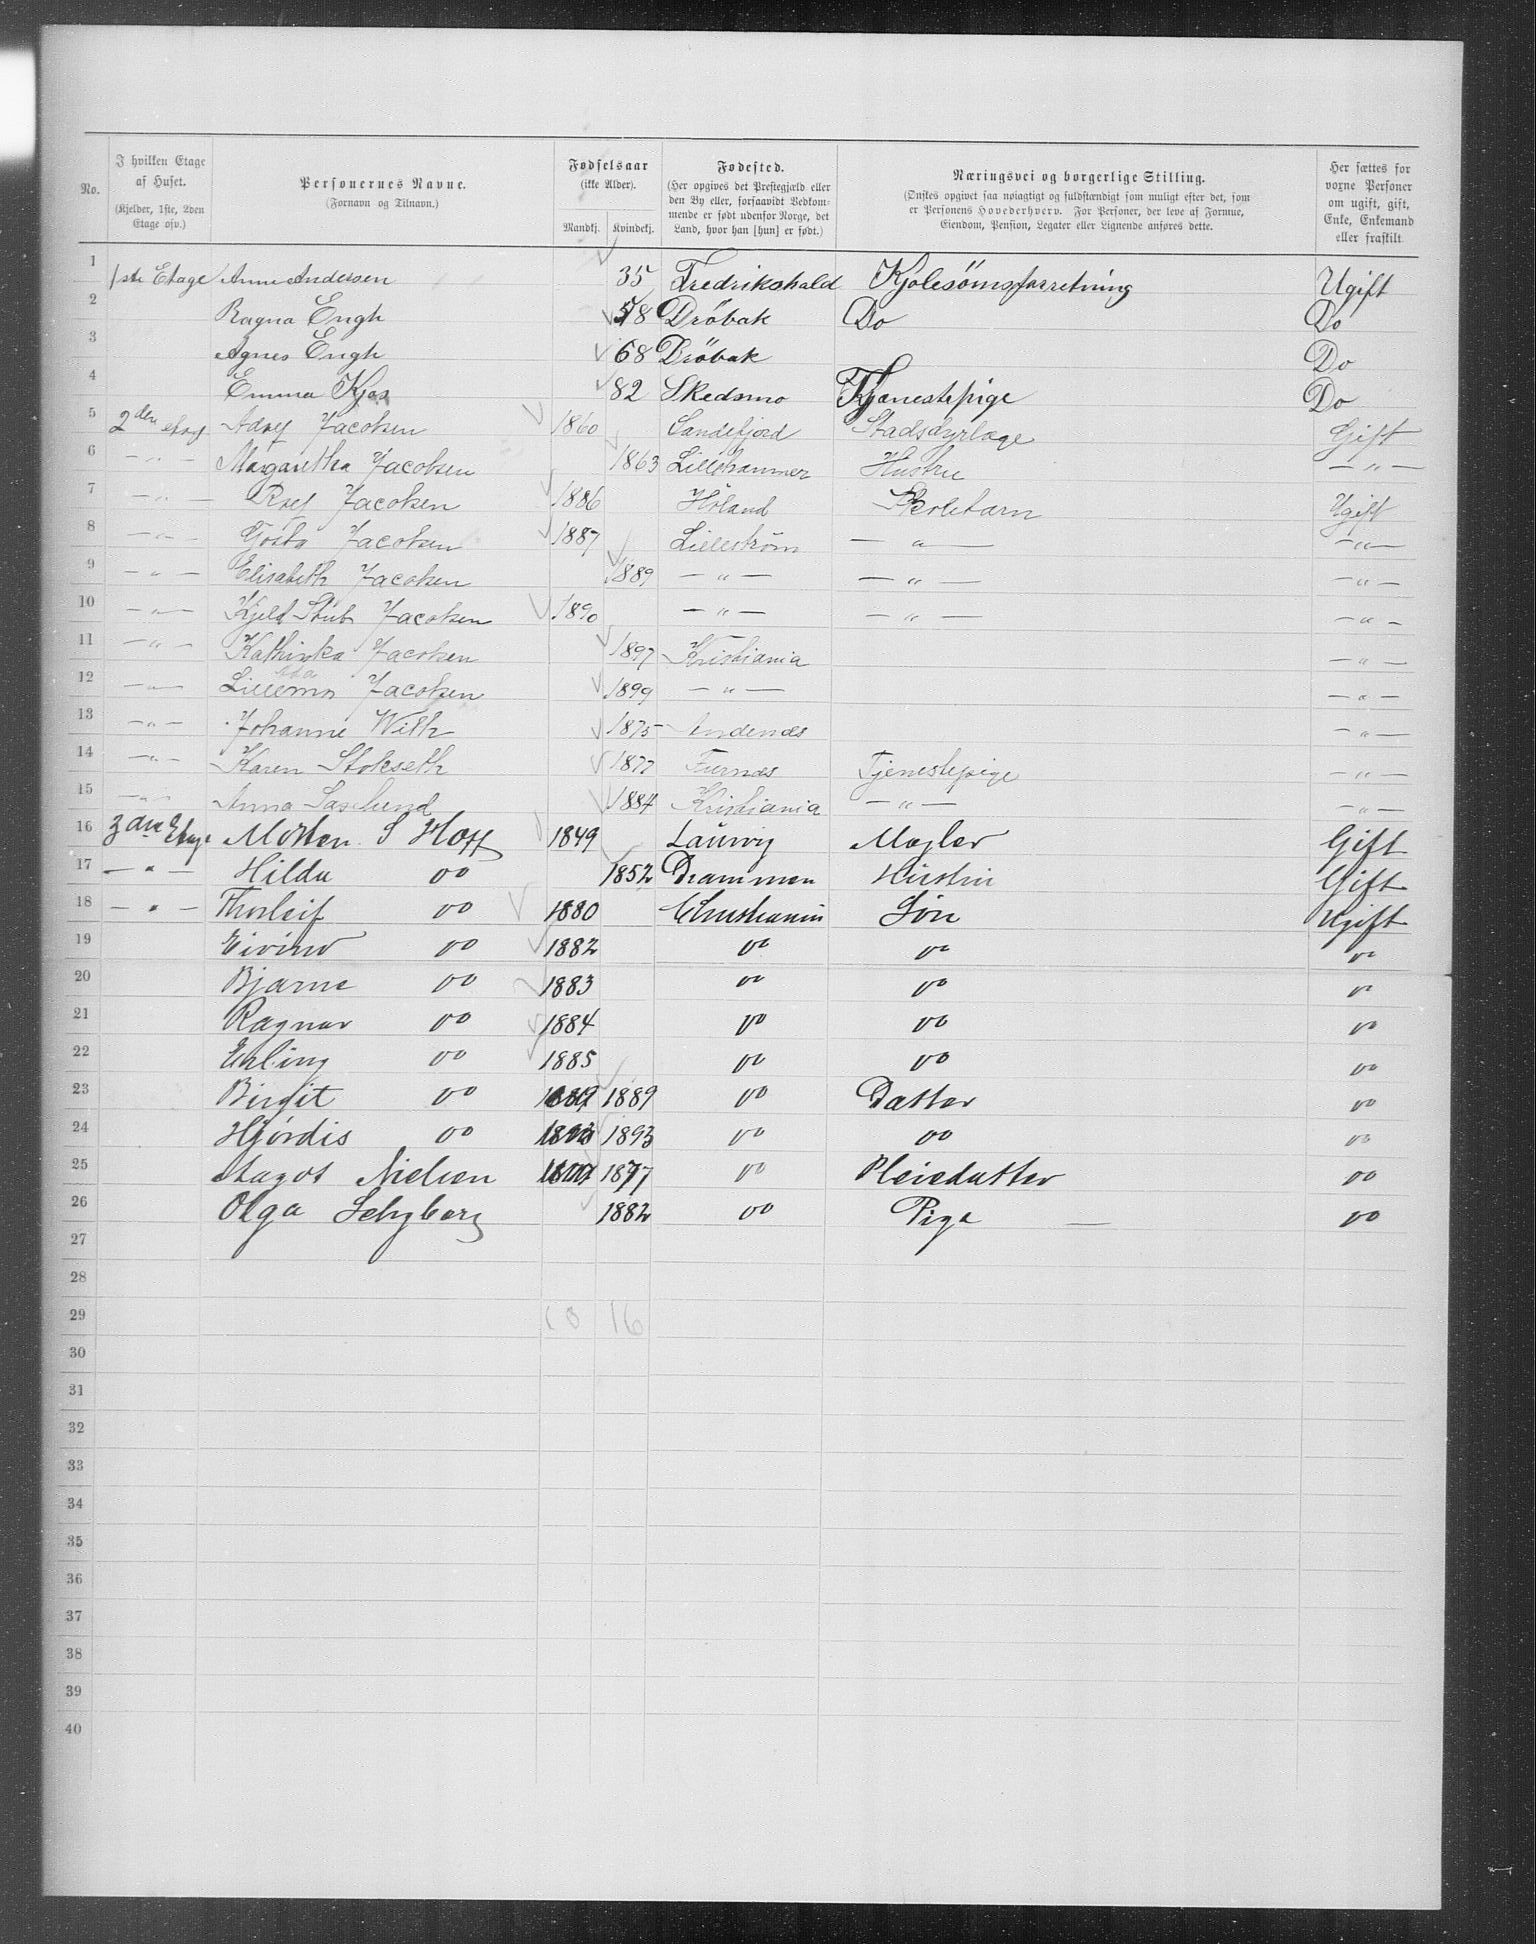 No.
I hvilken Etage af Huset. (Kjelder, 1ste, 2den Etage osv.)
Personernes Navne. (Fornavn og Tilnavn.)
Fødselsaar (ikke Alder). Mandkj. Kvindekj.
Fødested. (Her opgives det Prestegjæld eller den By eller, forsaavidt Vedkommende er født udenfor Norge, det Land, hvor han [hun] er født.)
Næringsvei og borgerlige Stilling. (Ønskes opgivet saa nøiagtigt og fuldstændigt som muligt efter det, som er Personens Hovederhverv. For Personer, der leve af Formue, Eiendom, Pension, Legater eller Lignende anføres dette.
Her sættes for voxne Personer om ugift, gift, Enke, Enkemand eller fraskilt
1 1ste Etage Anna Andersen 35 Fredrikshald Kjolesömsforretning Ugift
2 Ragna Engh 58 Dröbak Do Do
3 Agnes Engh 68 Dröbak Do
4 Emma Kjos 82 Skedsmo Tjenestepige Do
5 2den etag Adolf Jacobsen 1860 Sandefjord Stadsdyrlæge Gift
6 — " — Margaretha Jacobsen 1863 Lillehammer Hustru — " —
7 — " — Rolf Jacobsen 1886 Höland Skolebarn Ugift
8 — " — Gösta Jacobsen 1887 Lilleström — " — — " —
9 — " — Elisabeth Jacobsen 1889 — " — — " — — " —
10 — " — Kjeld Stub Jacobsen 1890 — " — — " — — " —
11 — " — Kathinka Jacobsen 1897 Kristiania — " —
12 — " — Lillemo Jacobsen 1899 — " — — " —
13 — " — Johanne With 1875 Andenæs — " —
14 — " — Karen Stokseth 1877 Furnæs Tjenestepige — " —
15 — " — Anna 1884 Kristiania — " — — " —
16 3die Etage Morten S Hoff 1849 Laurvig Mægler Gift
17 — " — Hilda do 1852 Drammen Hustru Gift
18 — " — Thorleif do 1880 Christiania Sön Ugift
19 Eivind do 1882 do do do
20 Bjarne do 1883 do do do
21 Ragnar do 1884 do do do
22 Erling do 1885 do do do
23 Birgit do 1889 1889 do Datter do
24 Hjördis do 1893 1893 do do do
25 Magot Nielsen 1877 1877 do Pleiedatter do
26 Olga Sehyberg 1882 do Pige — do
27
28
29 10 16
30
31
32
33
34
35
36
37
38
39
40